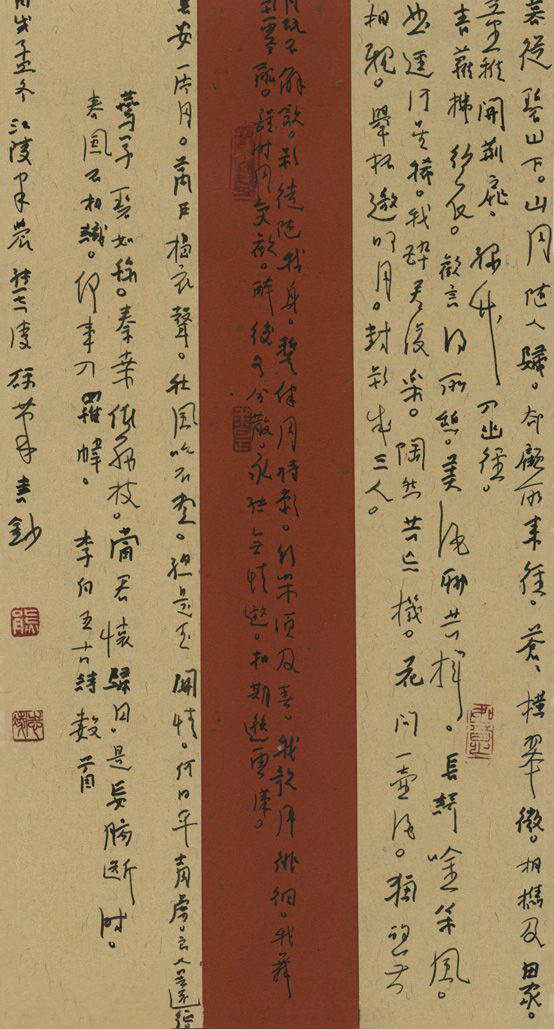 暮從碧山下。山月隨人歸。却顧所來徑。蒼、橫翠微。相攜及田家。
童稚開荊扉。綠竹入幽徑。
青蘿拂行衣。歡言得所憩。美酒聊共揮。長歌吟松風。
曲盡河星稀。我醉君復樂。陶然共忘機。花間一壺酒。獨酌無
相親。舉杯邀明月。對影成三人。
月既不解飲。影徒隨我身。暫伴月將影。行樂須及春。我歌月徘徊。我舞
影零亂。醒時同交歡。醉後各分散。永結無情遊。相期邈雲漢。
長安一片月。萬戶擣衣聲。秋風吹不盡。總是玉關情。何日平胡虜。良人罷遠征
燕草碧如絲。秦桑低綠枝。當君懷歸日。是妾腸斷時。
春風不相識。何事入羅幃。李白五古詩數首
戌孟冬江陵書鈔